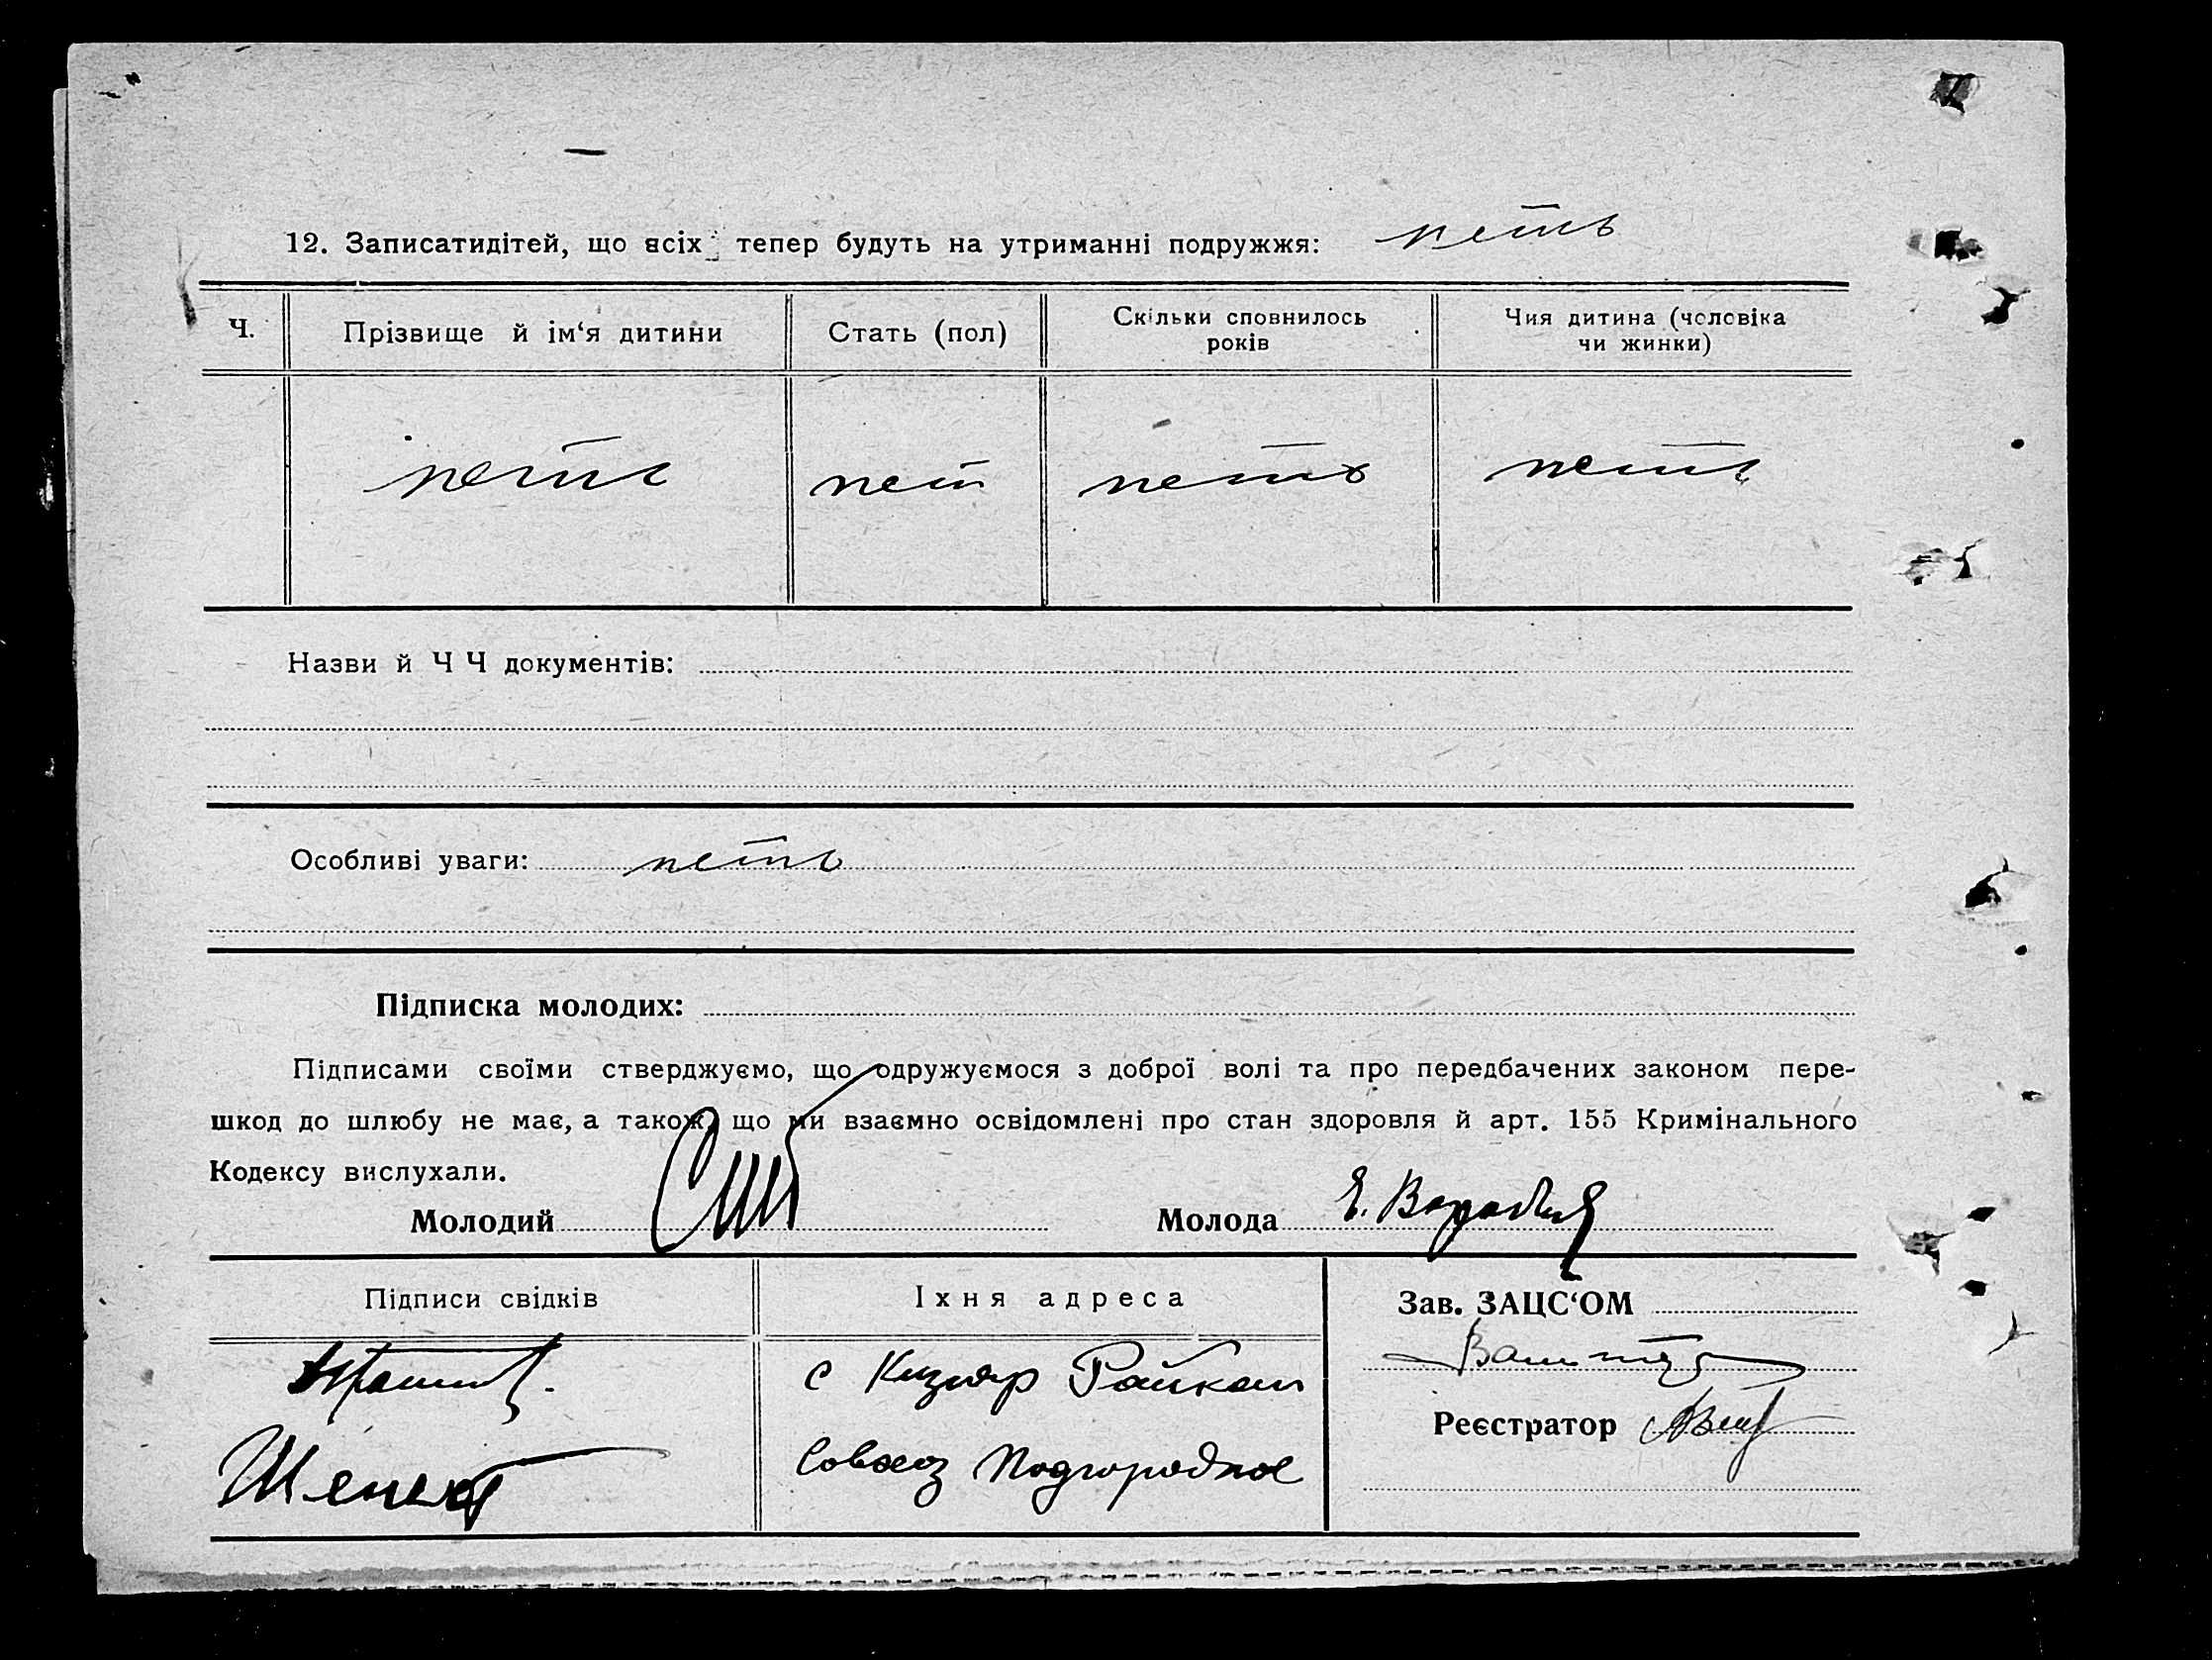 12. Записатидітей, що всіх тепер будуть на утриманні подружжя: нетъ
Ч. Прізвище й ім‘я дитини Стать (пол) Скільки сповнилось років Чия дитина (чоловіка чи жинки)
нетъ нет нетъ нетъ
Назви й Ч Ч документів:
Особливі уваги: нетъ
Підписка молодих:
Підписами своїми стверджуємо, що одружуємося з доброї волі та про передбачених законом пере-
шкод до шлюбу не має, а також, що ми взаємно освідомлені про стан здоровля й арт. 155 Кримінального
Кодексу вислухали.
Молодий Молода Е.
Підписи свідків Їхня адреса Зав. ЗАЦС‘ОМ
с Кизияр
Реєстратор
Совхоз Подгородное